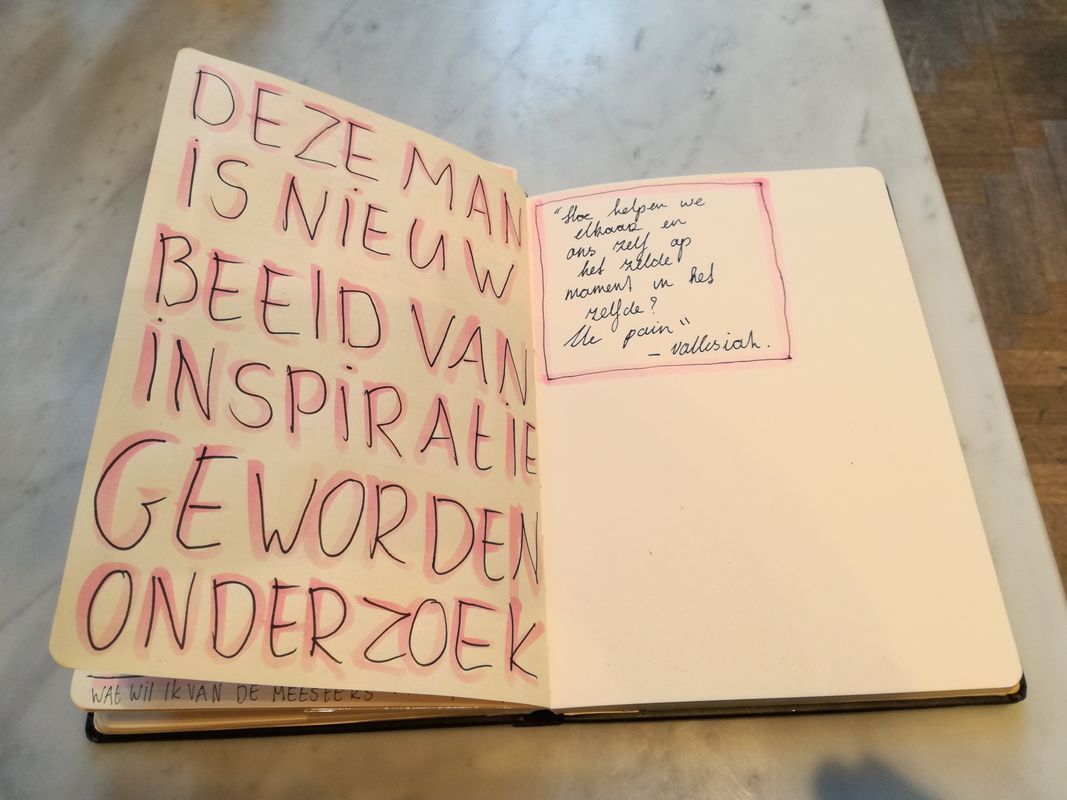 DEZE MAN
iS NiEUW
BEELD VAN
iNSPiRAtiE
GEWORDEN
ONDERZOEK
WAt Wil IK VAN DE MEESTERS
"Hoe helpen we
elkaar en
ons zelf op
het zelde
moment in het
zelfde?
pain"